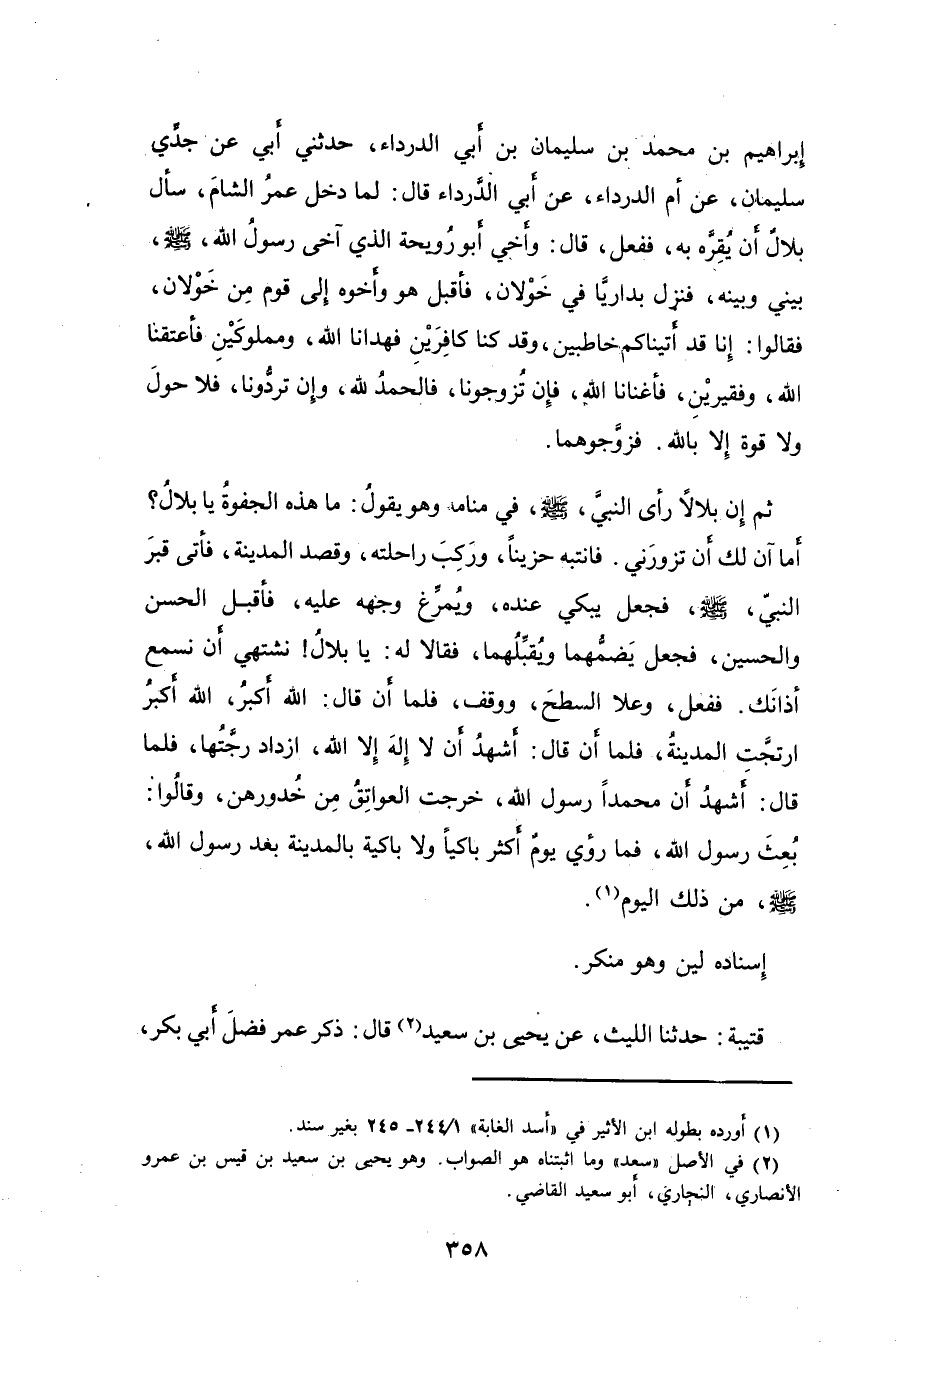 إبراهيم بن محمد بن سليمان بن أَبي الدرداء، حدثني أَبي عن جدِّي
سليمان، عن أم الدرداء، عن أَبي الدَّرداء قال: لما دخل عمرُ الشامَ، سأل
بلالٌ أَن يُقِرَّه به، ففعل، قال: وأَخي أَبو رُويحة الذي آخى رسولُ الله، ﷺ،
بيني وبينه، فنزل بداريَّا في خَوْلان، فأقبل هو وأَخوه إِلى قوم مِن خَوْلان،
فقالوا: إِنا قد أَتيناكم خاطبين، وقد كنا كافِرَيْنِ فهدانا الله، ومملوكَيْنِ فأعتقنا
الله، وفقيريْنِ، فأغنانا الله، فإِن تُزوجونا، فالحمدُ لله، وإِن تردُّونا، فلا حولَ
ولا قوة إِلا بالله. فزوَّجوهما.
ثم إِن بلالًا رأى النبيَّ، ﷺ، في منامه وهو يقولُ: ما هذه الجفوةُ يا بلالُ؟
أَما آن لك أَن تزورَني. فانتبه حزيناً، ورَكِبَ راحلته، وقصد المدينة، فأَتى قبرَ
النبيّ، ﷺ، فجعل يبكي عنده، ويُمرِّغ وجهه عليه، فأقبل الحسن
والحسين، فجعل يَضمُّهما ويُقبِّلُهما، فقالا له: يا بلالُ! نشتهي أَن نسمع
أذانَك. ففعل، وعلا السطحَ، ووقف، فلما أَن قال: الله أَكبرُ، الله أَكبرُ
ارتجَّتِ المدينةُ، فلما أَن قال: أَشهدُ أَن لا إِلهَ إِلا الله، ازداد رجَّتُها، فلما
قال: أَشهدُ أَن محمداً رسول الله، خرجت العواتِقُ مِن خُدورهن، وقالُوا:
بُعِثَ رسول الله، فما رؤي يومٌ أَكثر باكياً ولا باكية بالمدينة بعد رسول الله،
ﷺ، من ذلك اليوم(١).
إِسناده لين وهو منكر.
قتيبة: حدثنا الليث، عن يحيى بن سعيد(٢) قال: ذكر عمر فضلَ أَبي بكر،
(١) أورده بطوله ابن الأثير في «أسد الغابة» ٢٤٤/١ـ ٢٤٥ بغير سند.
(٢) في الأصل «سعد» وما اثبتناه هو الصواب. وهو يحيى بن سعيد بن قيس بن عمرو
الأنصاري، النجاري، أبو سعيد القاضي.
٣٥٨